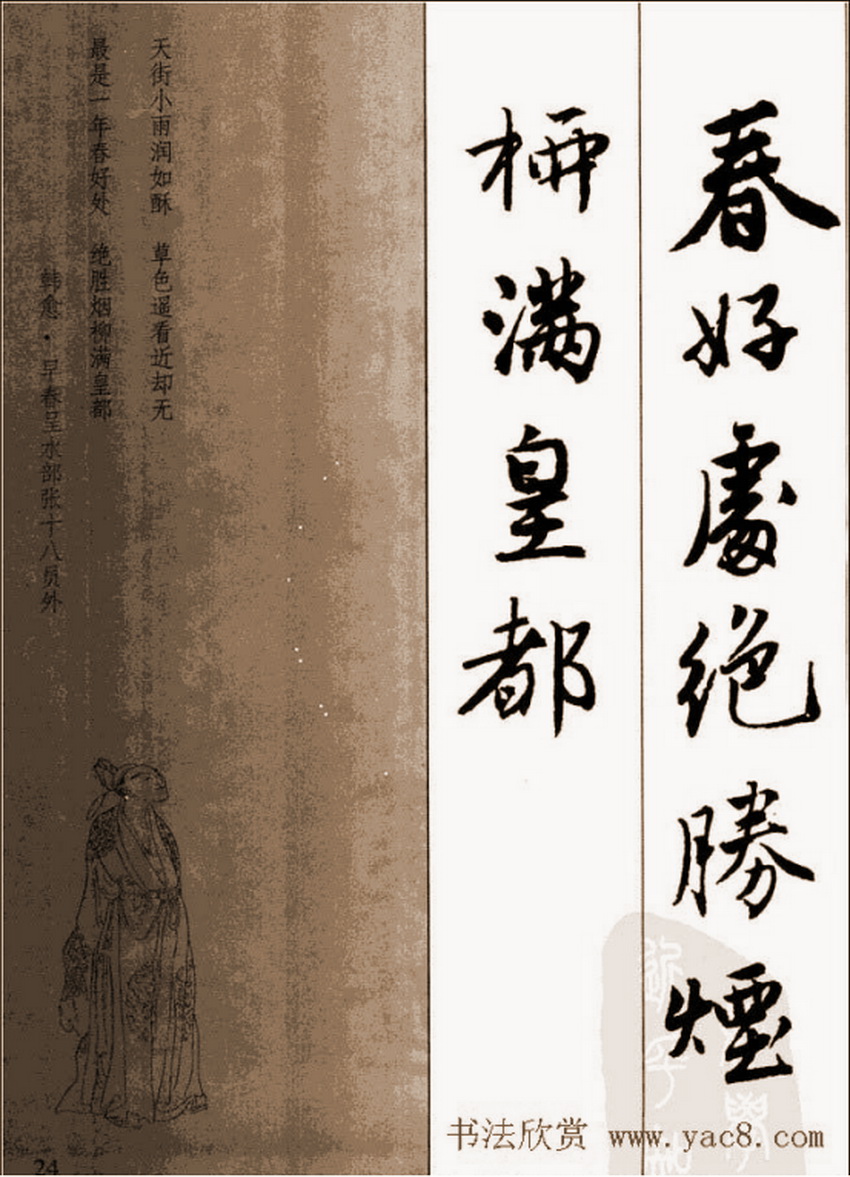 春好處絶勝煙
桺滿皇都
天街小雨润如酥 草色遥看近却无
最是一年春好处 绝胜烟柳满皇都
韩愈·早春呈水部张十八员外
24
书法欣赏 www.yac8.com